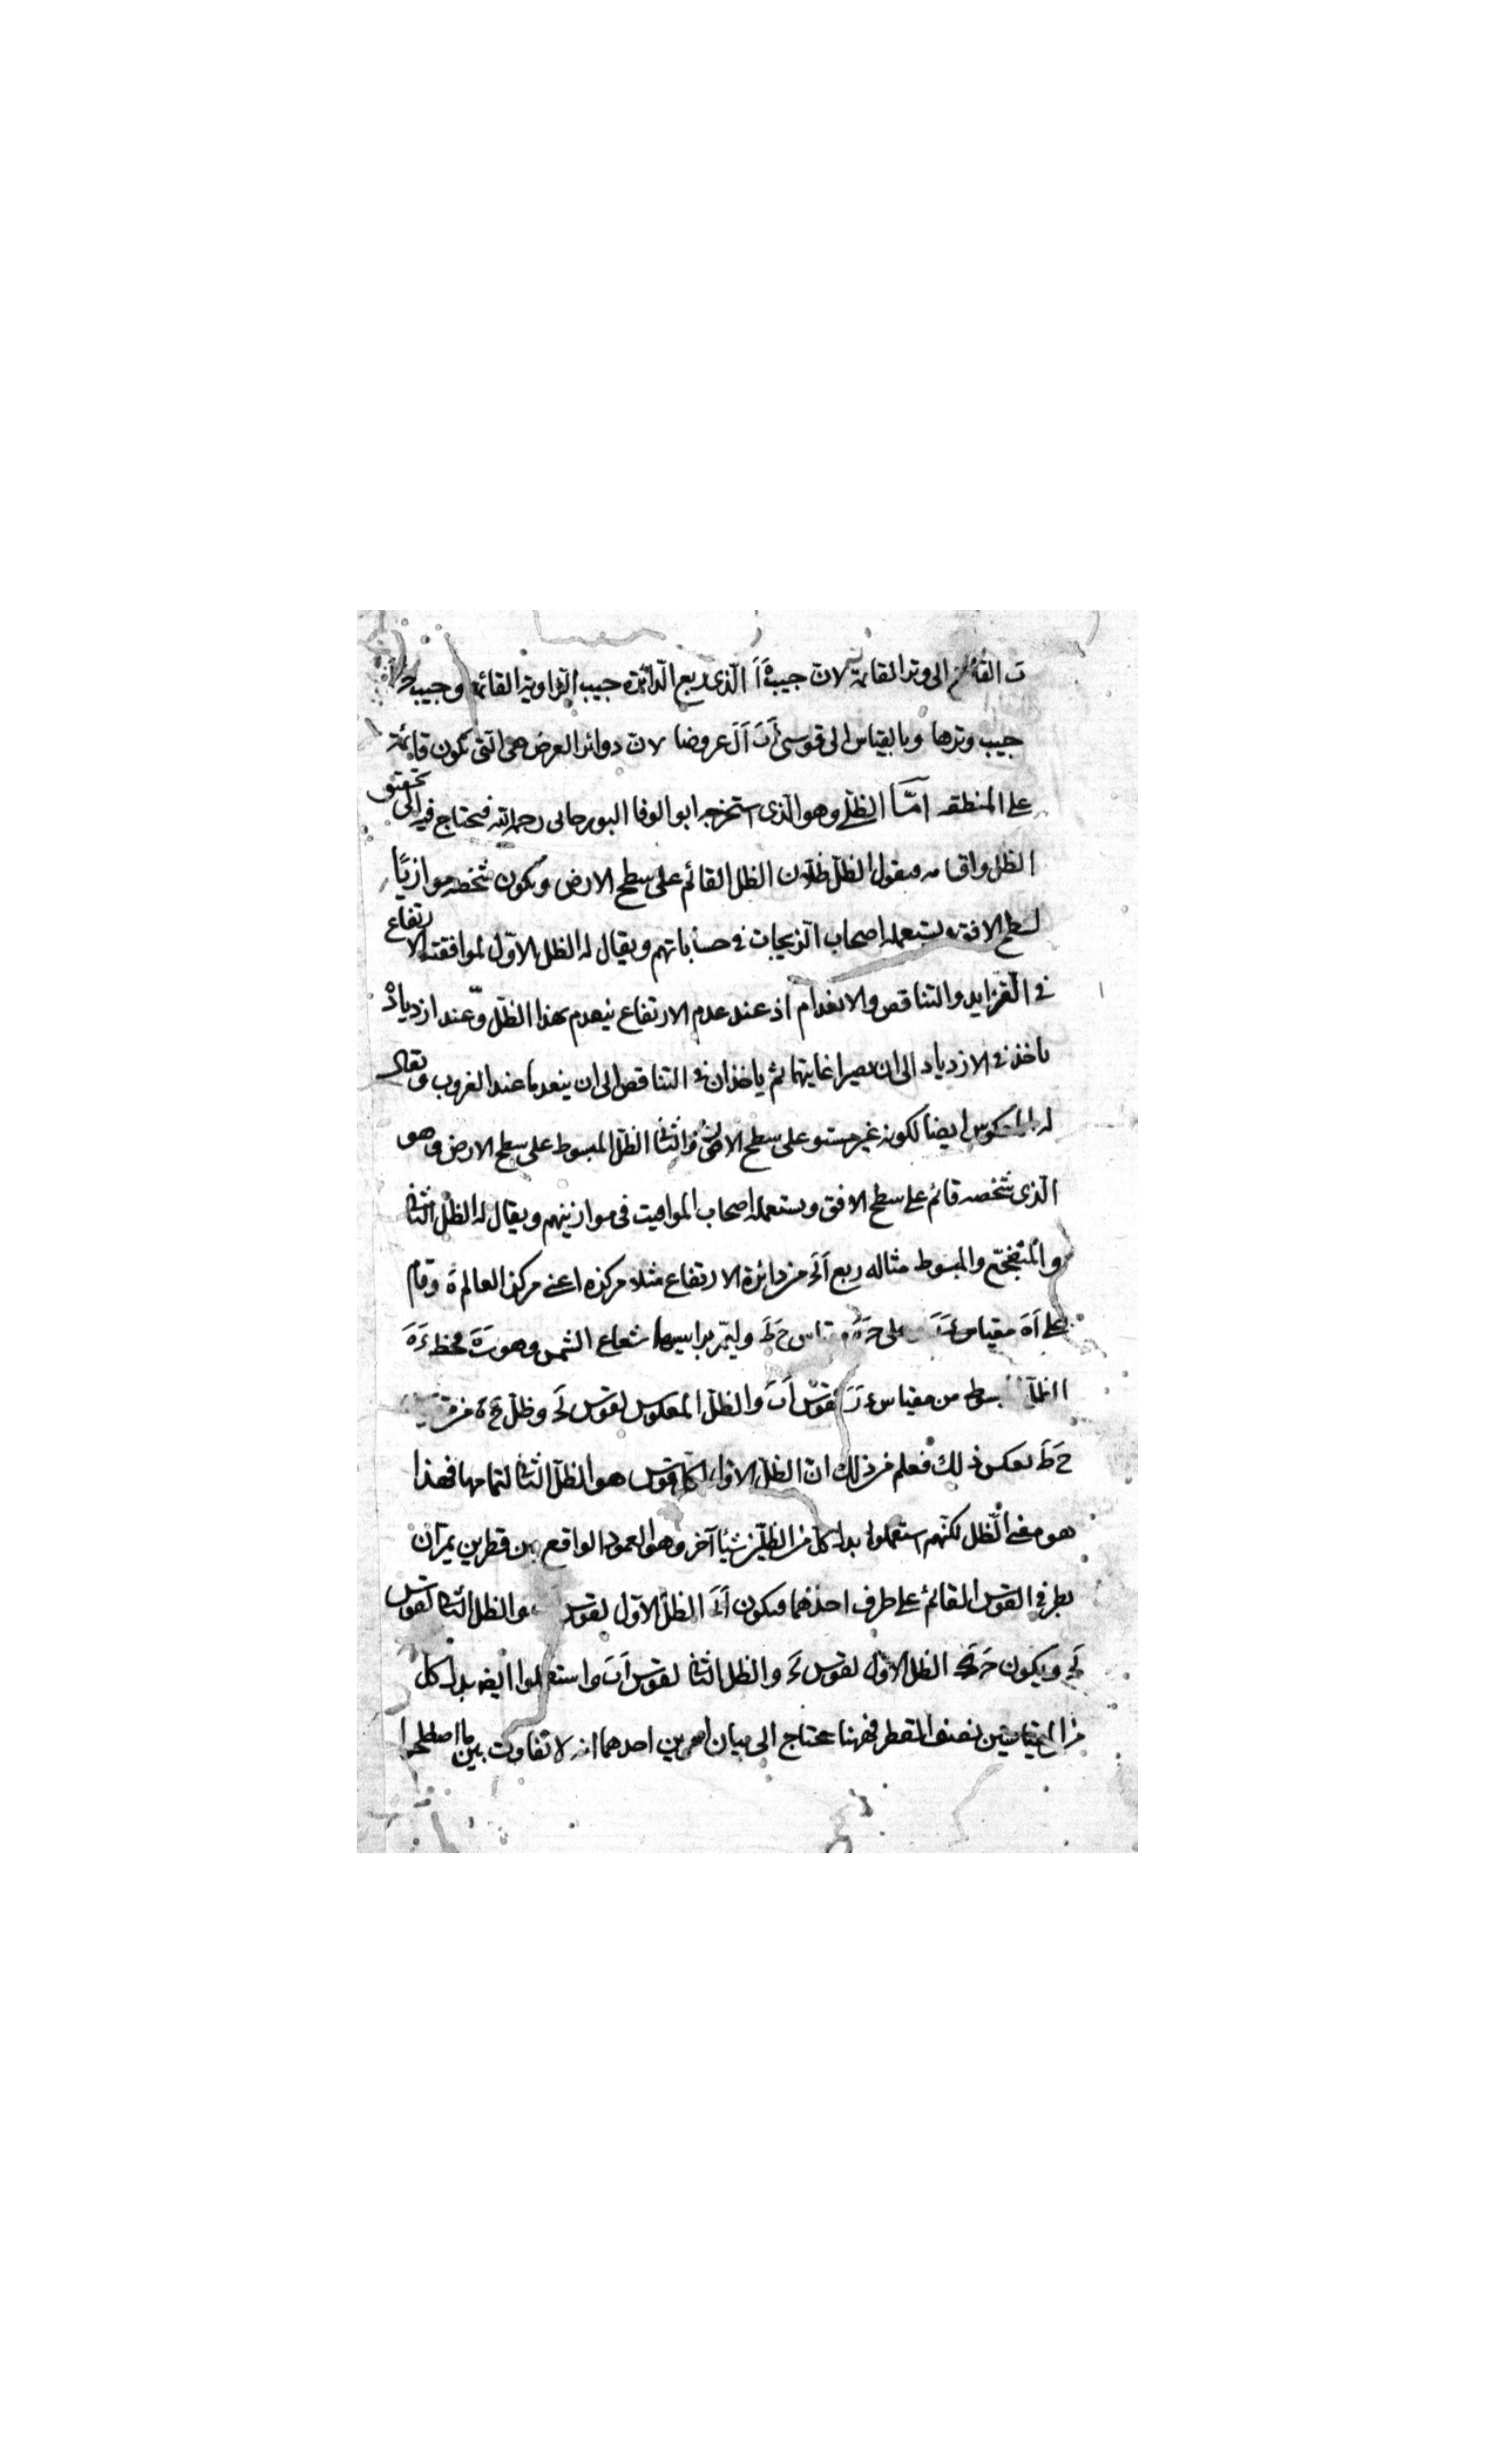 القائم الى وتر القائمة لان جيب ةا الذى ربع الدائرة جيب الزاوية القائمة وجيب
جيب وترها وبالقياس الى قوسى اب اد عروضا لان دوائر العرض هى التى تكون قائمة
على المنطقه اما الظلى وهو الذى استخرجه ابو الوفا البوزجانى رحمه الله فيحتاج فيه الى تحقيق
الظل واقسامه فيقول الظل ظلان الظل القائم على سطح الارض ويكون شخصه موازيا
لسطح الافق يستعمله اصحاب الزيجات فى حساباتهم ويقال له الظل الاول لموافقته الارتفاع
فى التزايد والتناقص والانعدام اذ عند عدم الارتفاع ينعدم هذا الظل وعند ازدياده
ياخذ فى الازدياد الى ان يصيرا غايتهما ثم ياخذان فى التناقص الى ان ينعدما عند الغروب ويقال
له المعكوس ايضا لكونه غير مستو على سطح الارض والثانى الظل المبسوط على سطح الارض وهو
الذى شخصه قائم على سطح الافق ويستعمله اصحاب المواقيت فى موازينهم ويقال له الظل الثانى
و والمبسوط مثاله ربع اح من دائرة الارتفاع مثلا مركزه اعنى مركز العالم ة وقام
على اة مقياس على حة مقياس حط وليمر براسيهما شعاع الشمس وهو فخط ءة
الظل المبسوط من مقياس ءر لقوس اب والظل المعكوس لقوس بح وظل من مقياس
حط بعكس ذلك فعلم من ذلك ان الظل الاول لكل قوس هو الظل الثانى لتمامها فهذا
هو معنى الظل لكنهم استعملوا بدل كل من الظلين شيئا آخر وهو العمود الواقع بين قطرين يمران
بطرفى القوس القائم على طرف احدهما فيكون الظل الاول لقوس والظل الثانى لقوس
بح ويكون الظل الاول لقوس بح والظل الثانى لقوس اب واستعملوا ايضه بدل كل
من المقياسين نصف القطر فههنا يحتاج الى بيان امرين احدهما انه لا تفاوت بين ما اصطلحوا